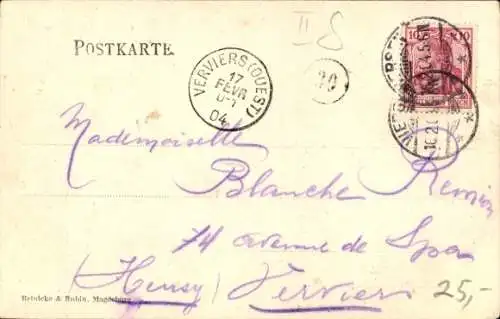 II S
POSTKARTE.
VERVIERS (OUEST)
17
FEVR
04
20
10 10
Mademoiselle
Blanche
74 avenue de Spa
(Heusy) Verviers
25,-
Reinicke & Rubin, Magdeburg